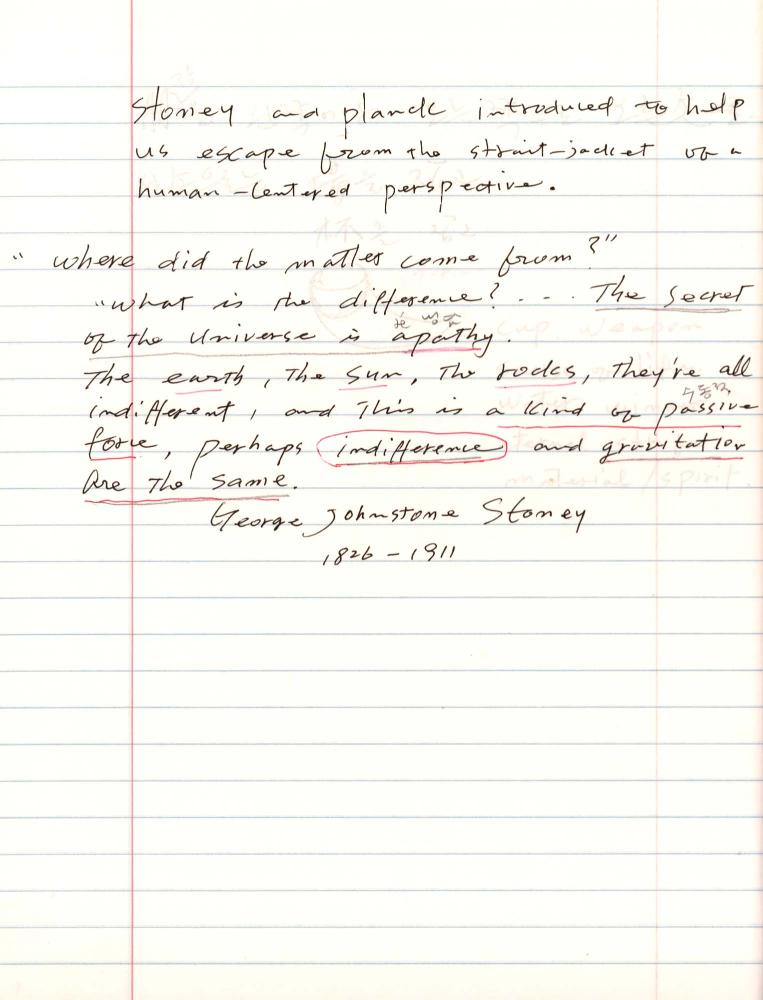 Stoney and planck introduced to help
us escape from the strait-jacket of a
human-centered perspective.
" where did the matter come from?"
"what is the difference? . . . The Secret
of the Universe is apathy.
The earth, The Sun, The rocks, they're all
수동적
indifferent, and This is a kind of passive
force, perhaps indifference and gravitation
Are The same.
George Johnstone Stoney
1826 - 1911